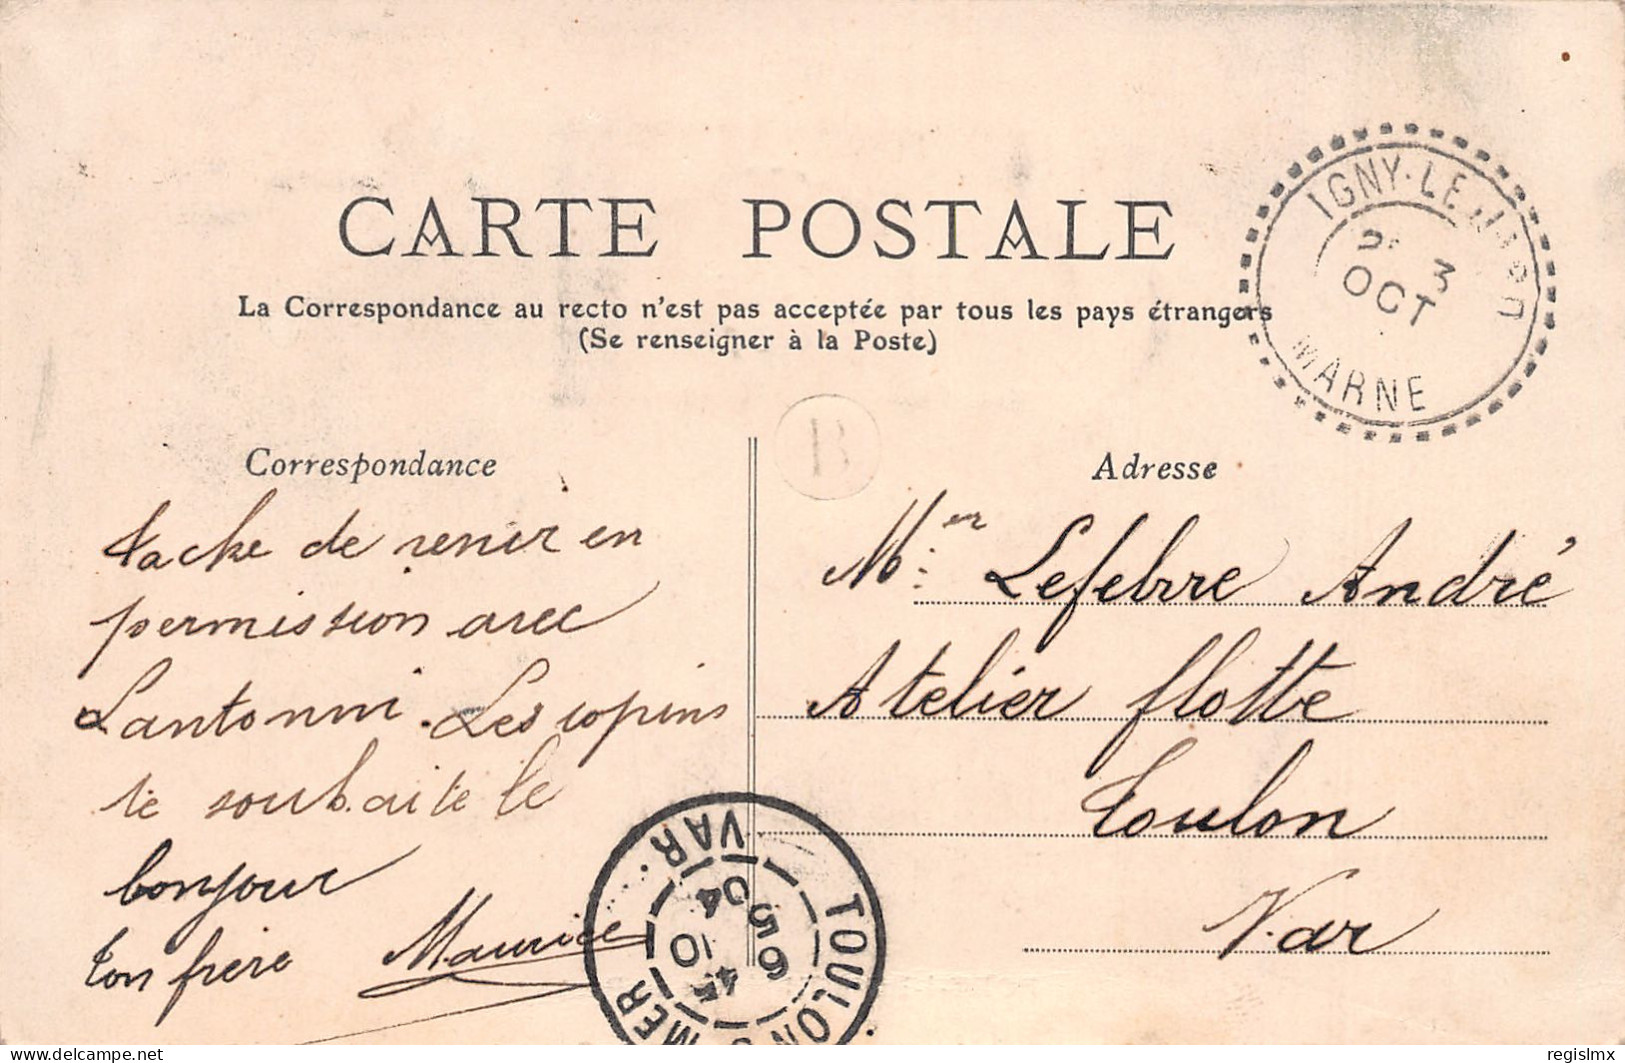 CARTE POSTALE
La Correspondance au recto n'est pas acceptée par tous les pays étrangers
(Se renseigner à la Poste)
IGNY-LE-JARD
3
OCT
MARNE
B
Correspondance
tache de venir en
permission avec
Lantonni. Les copins
te souhaite le
bonjour
ton frère Maurice
Adresse
Lefebvre André
Atelier flotte
Toulon
Var
TOULON S MER
VAR
6 45
5 10
04
delcampe.net
regislmx